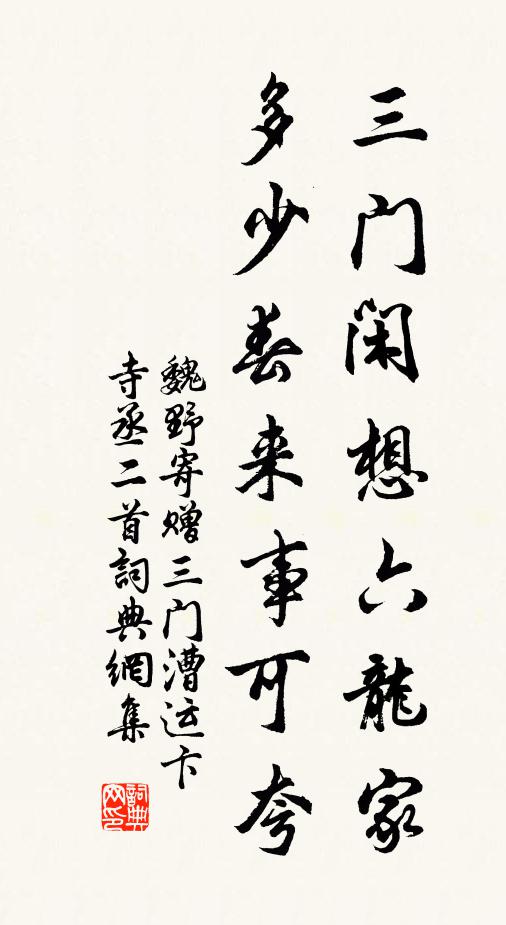 三门闲想六龍家
多少春来事可夸
魏野寄赠三门漕运卞
寺丞二首詞典網集
詞典
网印